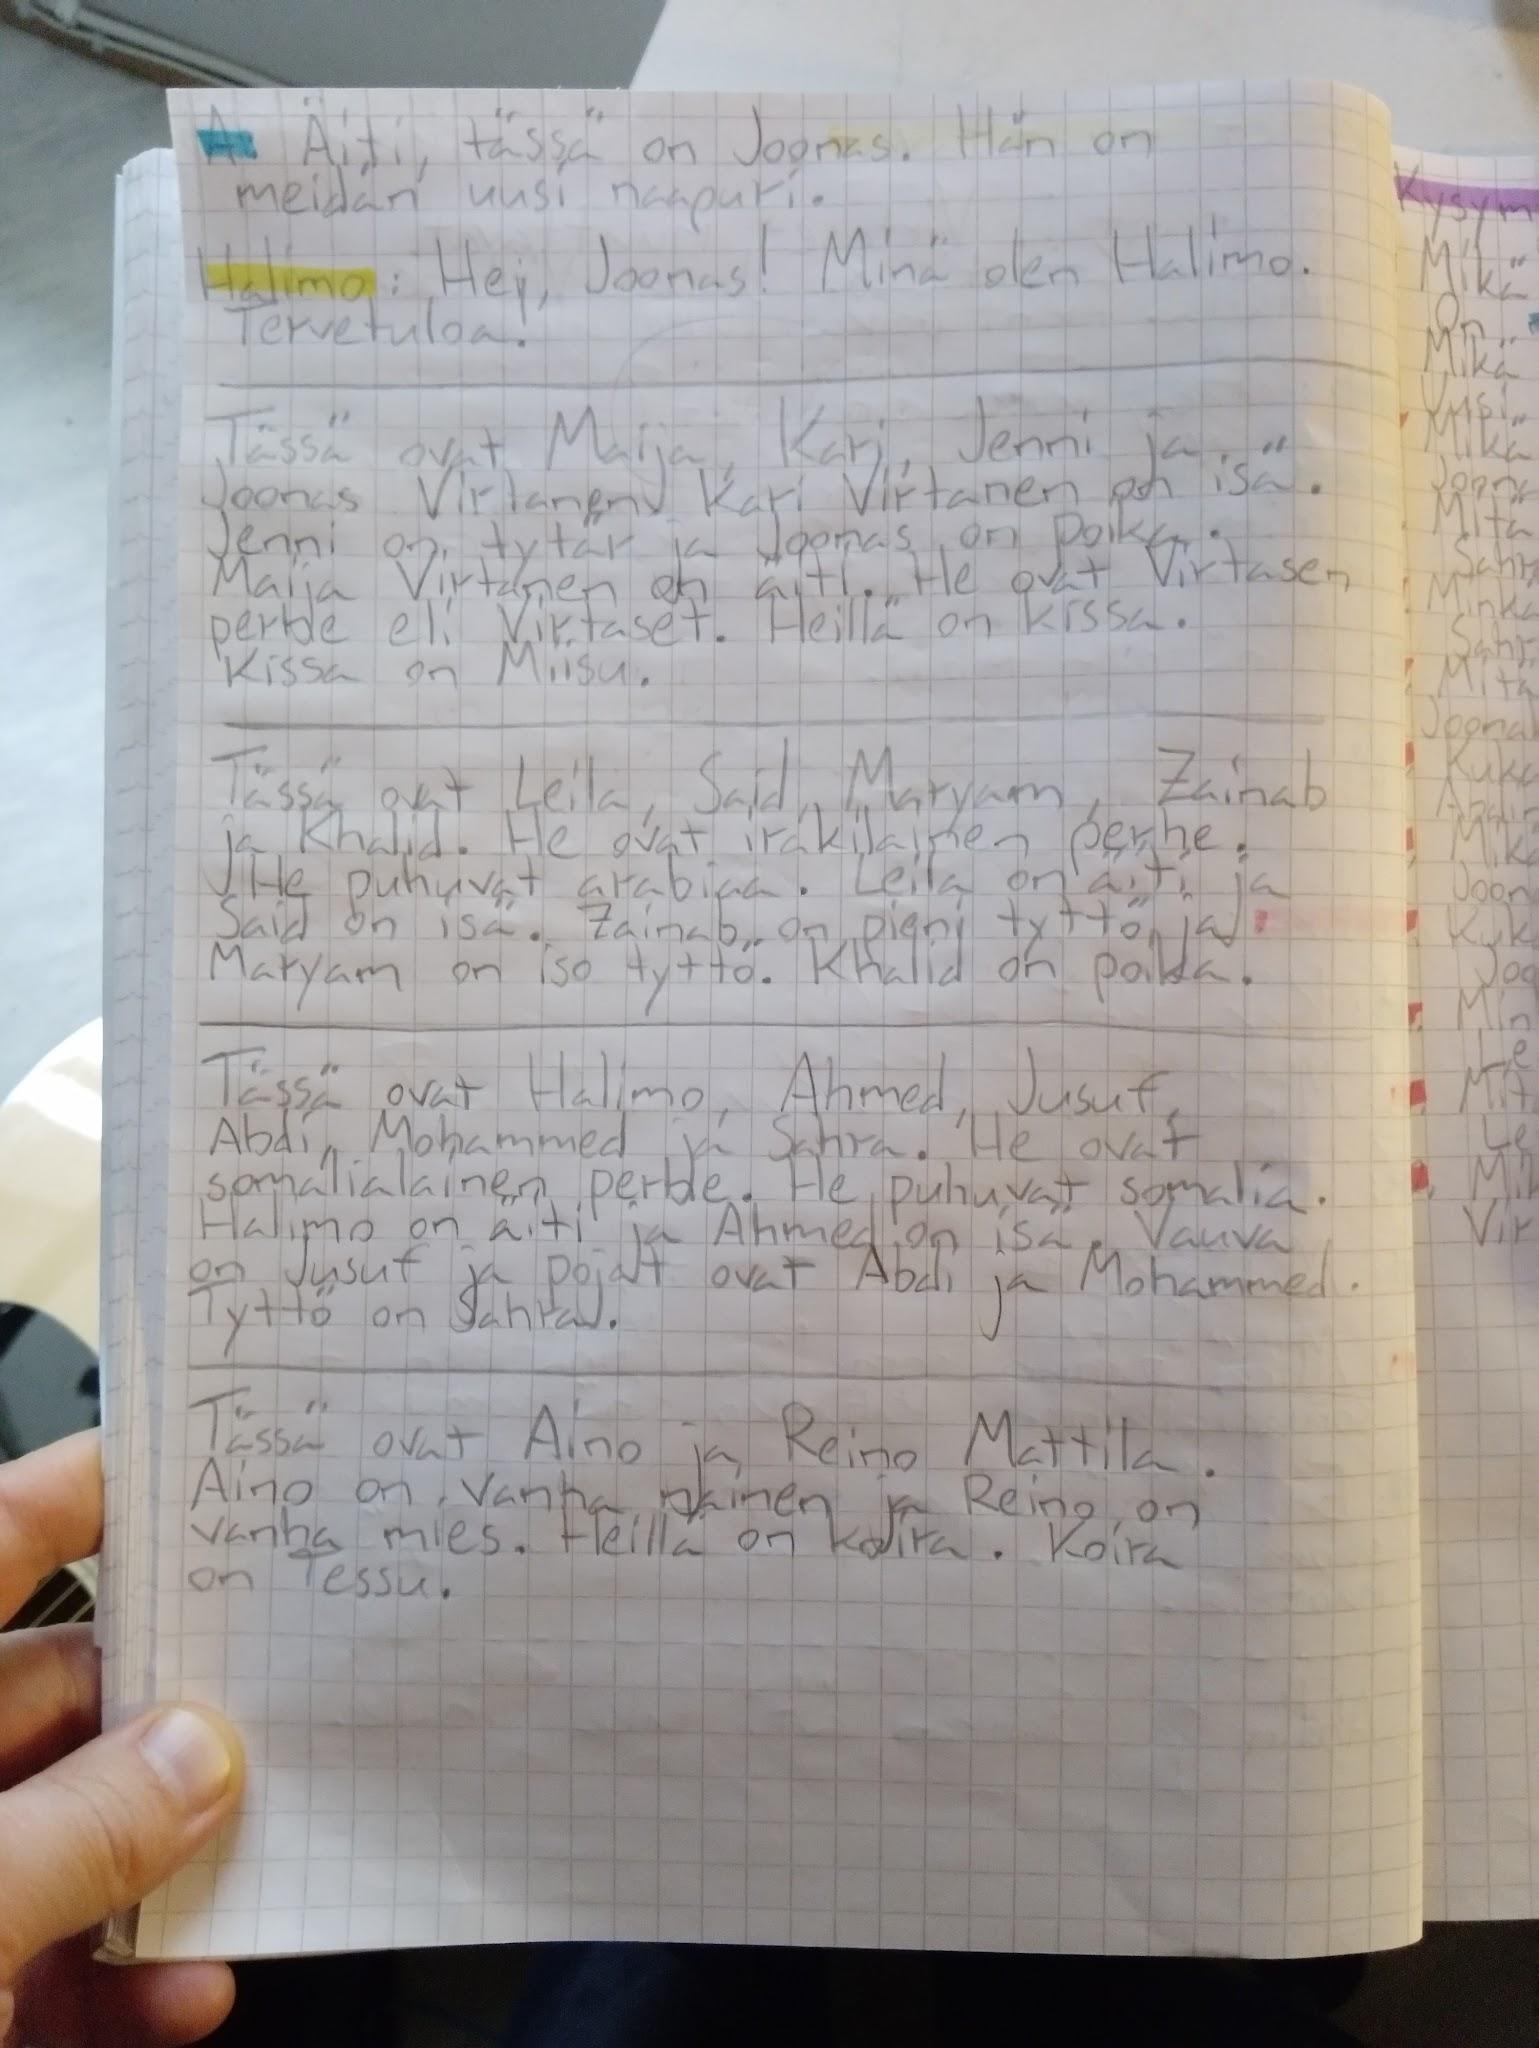 A: Äiti, tässä on Joonas. Hän on
meidän uusi naapuri.
Halimo: Hej, Joonas! Minä olen Halimo.
Tervetuloa!
Tässä ovat Maija, Kari, Jenni ja
Joonas Virtanen. Kari Virtanen on isä.
Jenni on tytär ja Joonas on poika.
Maija Virtanen on äiti. He ovat Virtasen
perhe eli Virtaset. Heillä on kissa.
Kissa on Miisu.
Tässä ovat Leila, Said, Maryam, Zainab
ja Khalid. He ovat irakilainen perhe.
He puhuvat arabiaa. Leila on äiti ja
Said on isä. Zainab on pieni tyttö ja
Maryam on iso tyttö. Khalid on poika.
Tässä ovat Halimo, Ahmed, Jusuf,
Abdi, Mohammed ja Sahra. He ovat
somalialainen perhe. He puhuvat somalia.
Halimo on äiti ja Ahmed on isä. Vauva
on Jusuf ja pojat ovat Abdi ja Mohammed.
Tyttö on Sahra.
Tässä ovat Aino ja Reino Mattila.
Aino on vanha nainen ja Reino on
vanha mies. Heillä on koira. Koira
on Tessu.
Kysym
Mikä
On
Mikä
Uusi
Mikä
Joona
Mitä
Sahr
Minkä
Sahr
Mitä
Joona
Kuka
Mikä
Joon
Kuk
Joo
Min
Le
Mit
Le
Mik
Vir